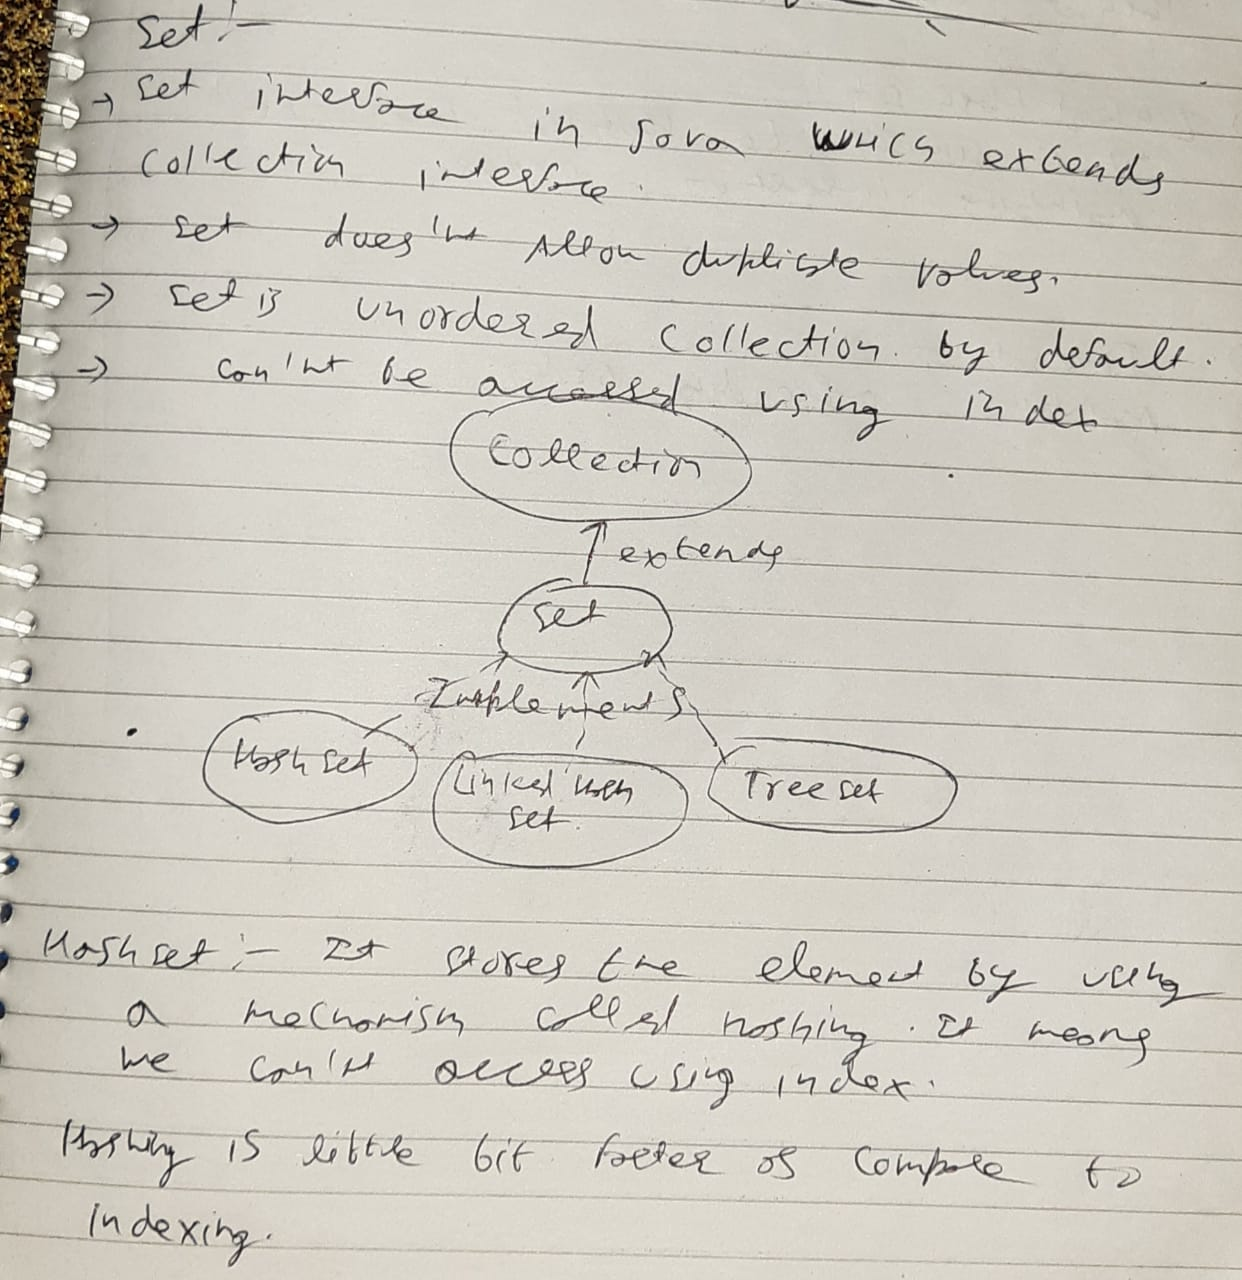 Set :-
→ Set interface in Java which extends
Collection interface.
→ Set does'nt Allow duplicate values.
→ Set is unordered collection. by default.
→ can'nt be accessed using index
Collection
extends
Set
Implements
Hash set
Linked Hash
set.
Tree set
Hash set :- It stores the element by using
a mechanism called hashing. It means
we can't access using index.
Hashing is little bit faster as compare to
indexing.